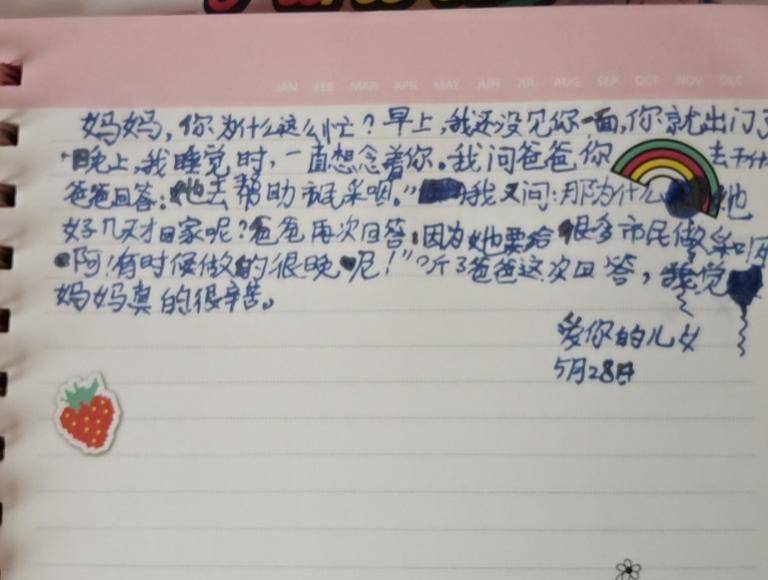 JAN FEB MAR APR MAY JUN JUL AUG SEP OCT NOV DEC
妈妈,你为什么这么忙?早上,我还没见你一面,你就出门了
晚上,我睡觉时,一直想念着你。我问爸爸你 去干什
爸爸回答:她去帮助市民采咽。”我又问:那为什么 她
好几天才回家呢?爸爸再次回答:因为她要给很多市民做采咽
阿!有时候做的很晚呢!”听了爸爸这次回答,我觉
妈妈真的很辛苦。
爱你的儿女
5月28日